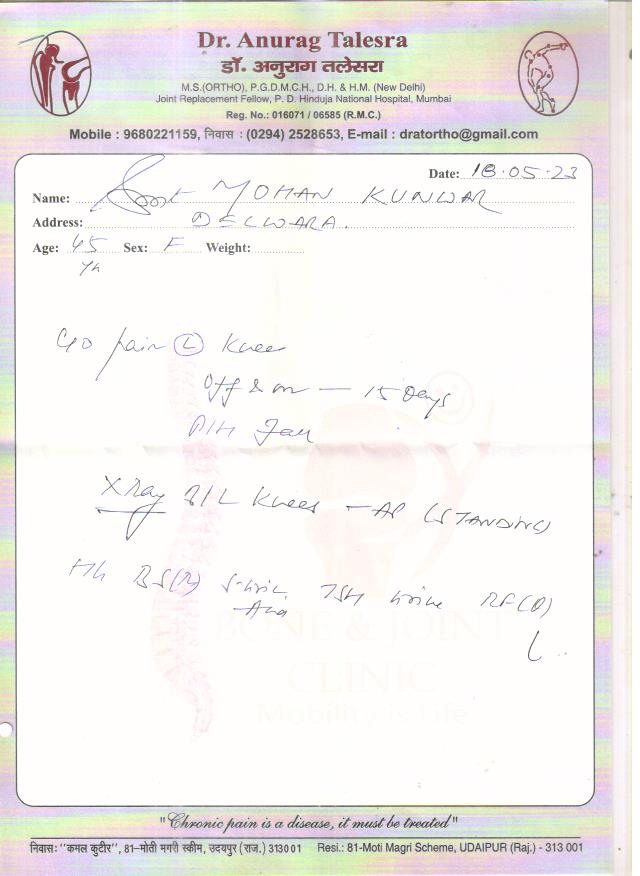 Dr. Anurag Talesra
डॉ. अनुराग तलेसरा
M.S.(ORTHO), P.G.D.M.C.H., D.H. & H.M. (New Delhi)
Joint Replacement Fellow, P. D. Hinduja National Hospital, Mumbai
Reg. No.: 016071 / 06585 (R.M.C.)
Mobile : 9680221159, निवास : (0294) 2528653, E-mail : dratortho@gmail.com
Date: 18.05.23
Name: Smt MOHAN KUNWAR
Address: DELWARA.
Age: 45 Sex: F Weight:
C/O pain (L) Knee
Off & on — 15 Days
Fall
X Ray B/L Knees – AP (STANDING)
Hb BS(R) S. Uric TSH Urine RF(Q)
Acid
BONE & JOINT
CLINIC
Mobility is Life
"Chronic pain is a disease, it must be treated"
निवासः "कमल कुटीर", 81–मोती मगरी स्कीम, उदयपुर (राज.) 313001 Resi.: 81-Moti Magri Scheme, UDAIPUR (Raj.) - 313 001